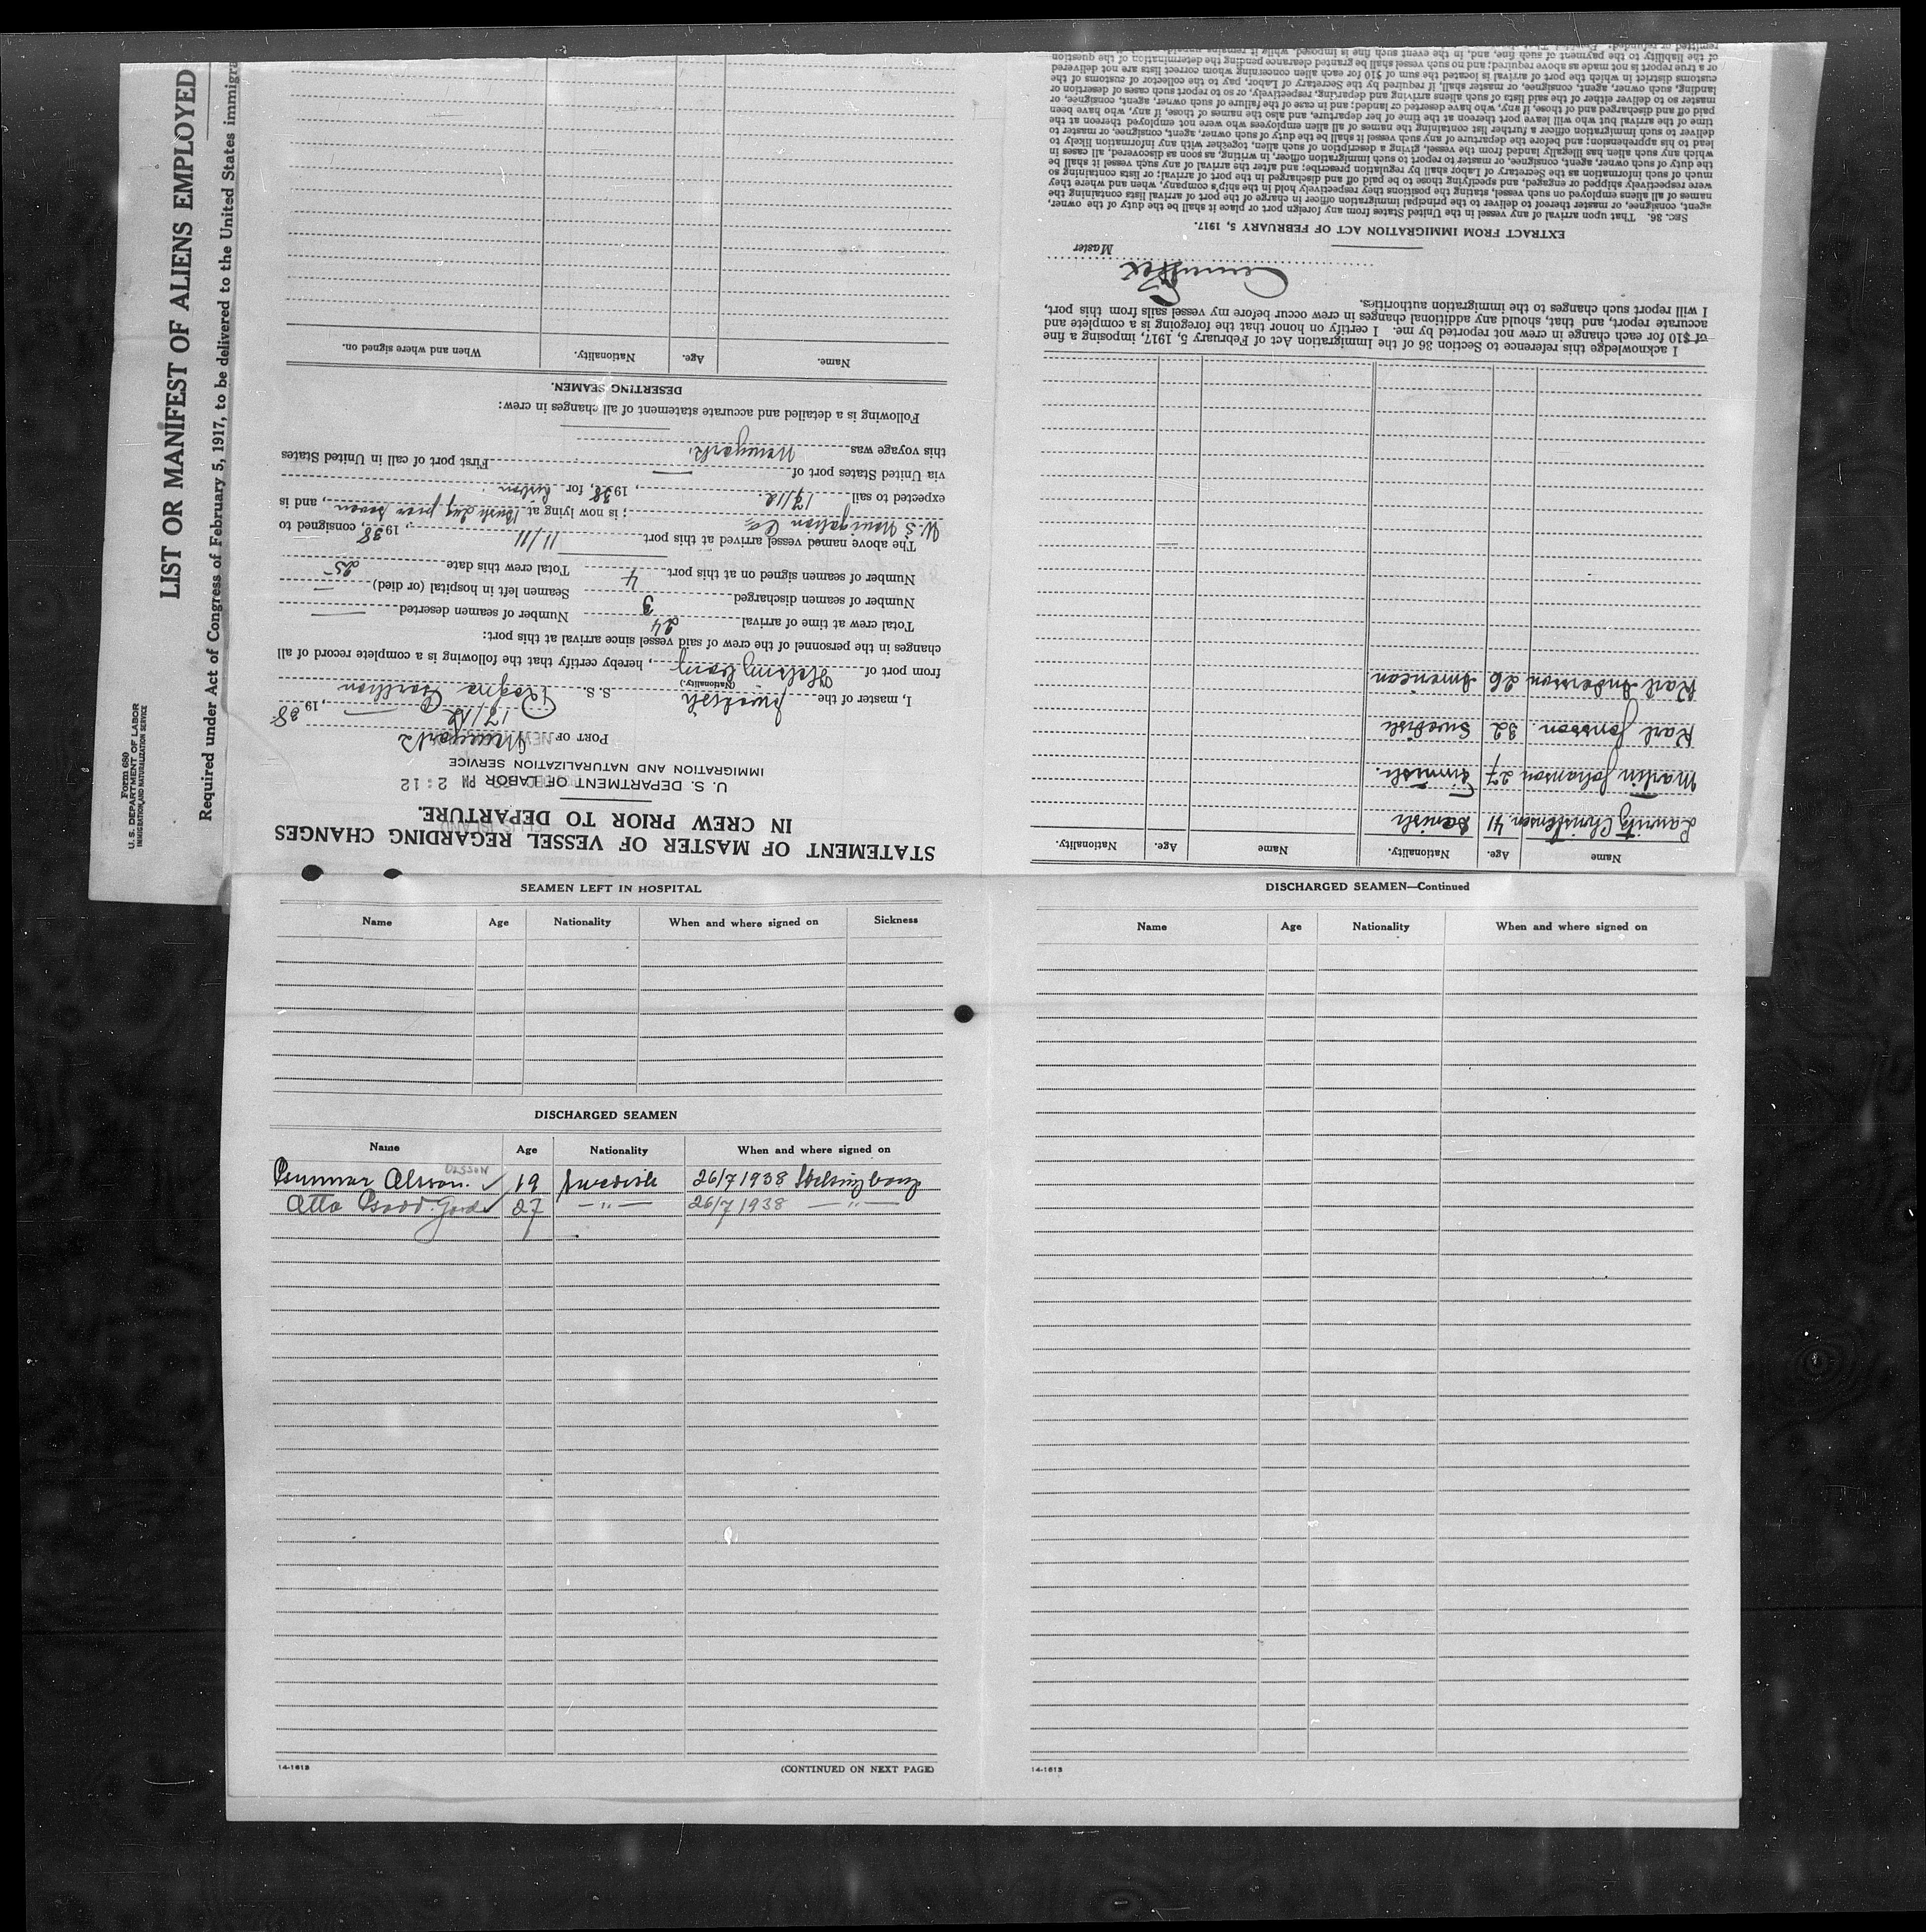 LIST OR MANIFEST OF ALIENS EMPLOYED
Required under Act of Congress of February 5, 1917, to be delivered to the United States immigra
Form 680
U. S. DEPARTMENT OF LABOR
IMMIGRATION AND NATURALIZATION SERVICE
STATEMENT OF MASTER OF VESSEL REGARDING CHANGES
IN CREW PRIOR TO DEPARTURE.
U. S. DEPARTMENT OF LABOR PM 2:12
IMMIGRATION AND NATURALIZATION SERVICE
PORT OF Newyork
17/12, 1938
I, master of the Swedish S. S.
(Nationality)
from port of Helsingborg, hereby certify that the following is a complete record of all
changes in the personnel of the crew of said vessel since arrival at this port:
Total crew at time of arrival 24 Number of seamen deserted —
Number of seamen discharged 3 Seamen left in hospital (or died) —
Number of seamen signed on at this port 4 Total crew this date 25
The above named vessel arrived at this port 11/11, 1938, consigned to
W. S. Navigation Co; is now lying at, and is
expected to sail 17/12, 1938, for Lisbon
via United States port of — First port of call in United States
this voyage was Newyork.
Following is a detailed and accurate statement of all changes in crew:
DESERTING SEAMEN.
Name. Age. Nationality. When and where signed on.
Name Age. Nationality. Name Age. Nationality.
Lauritz Christensen 41 Danish
Martin Johanson 27 Finnish.
Karl Jonsson 32 Swedish
Karl Andersson 26 American
I acknowledge this reference to Section 36 of the Immigration Act of February 5, 1917, imposing a fine
of $10 for each change in crew not reported by me. I certify on honor that the foregoing is a complete and
accurate report, and that, should any additional changes in crew occur before my vessel sails from this port,
I will report such changes to the immigration authorities.
Master
EXTRACT FROM IMMIGRATION ACT OF FEBRUARY 5, 1917.
SEC. 36. That upon arrival of any vessel in the United States from any foreign port or place it shall be the duty of the owner,
agent, consignee, or master thereof to deliver to the principal immigration officer in charge of the port of arrival lists containing the
names of all aliens employed on such vessel, stating the positions they respectively hold in the ship's company, when and where they
were respectively shipped or engaged, and specifying those to be paid off and discharged in the port of arrival; or lists containing so
much of such information as the Secretary of Labor shall by regulation prescribe; and after the arrival of any such vessel it shall be
the duty of such owner, agent, consignee, or master to report to such immigration officer, in writing, as soon as discovered, all cases in
which any such alien has illegally landed from the vessel, giving a description of such alien, together with any information likely to
lead to his apprehension; and before the departure of any such vessel it shall be the duty of such owner, agent, consignee, or master to
deliver to such immigration officer a further list containing the names of all alien employees who were not employed thereon at the
time of the arrival but who will leave port thereon at the time of her departure, and also the names of those, if any, who have been
paid off and discharged and of those, if any, who have deserted or landed; and in case of the failure of such owner, agent, consignee, or
master so to deliver either of the said lists of such aliens arriving and departing, respectively, or so to report such cases of desertion or
landing, such owner, agent, consignee, or master shall, if required by the Secretary of Labor, pay to the collector of customs of the
customs district in which the port of arrival is located the sum of $10 for each alien concerning whom correct lists are not delivered
or a true report is not made as above required; and no such vessel shall be granted clearance pending the determination of the question
of the liability to the payment of such fine, and, in the event such fine is imposed, while it remains unpaid
remitted or refunded:
SEAMEN LEFT IN HOSPITAL
Name Age Nationality When and where signed on Sickness
DISCHARGED SEAMEN
Name Age Nationality When and where signed on
OLSSON
Gunnar Olsson. ✓ 19 Swedish 26/7 1938 Helsingborg
Otto 27 — " — 26/7 1938 — " —
14-1613 (CONTINUED ON NEXT PAGE)
DISCHARGED SEAMEN—Continued
Name Age Nationality When and where signed on
14-1613